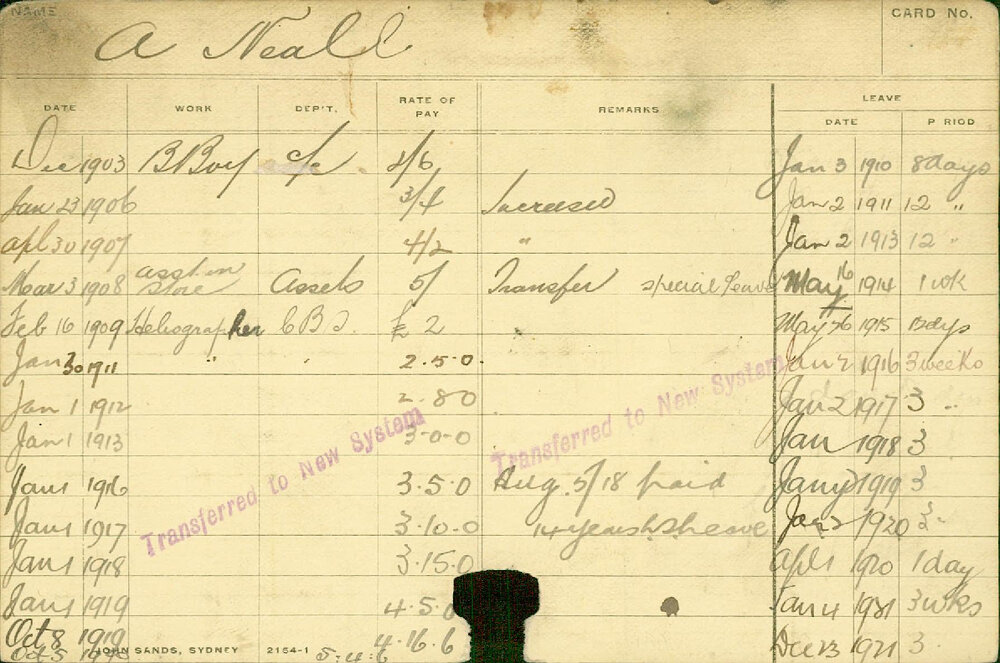 NAME
A Neall
CARD No.
DATE WORK DEP'T. RATE OF PAY REMARKS LEAVE
DATE P RIOD
Dec 1903 BBoy c/c 2/6 Jan 3 1910 8 days
Jan 23 1906 3/4 Increased Jan 2 1911 12 "
Apl 30 1907 4/2 " Jan 2 1913 12 "
Mar 3 1908 asst in Store Assets 5/ Transfer special leave May 16 1914 1 wk
Feb 16 1909 Heliographer £ 2 May 26 1915 days
Jan 30 1911 " " 2.5.0 Jan 2 1916 3 weeks
Jan 1 1912 2.8.0 Jan 2 1917 3 "
Jan 1 1913 3-0-0 Jan 1918 3
Jan 1 1916 3.5.0 Aug 5/18 paid Jany 1919 3
Jan 1 1917 3.10.0 14 years leave Jan 2 1920 3
Jan 1 1918 3.15.0 Apl 1 1920 1 day
Jan 1 1919 4.5.0 Jan 4 1921 3 wks
Oct 8 1919 4.16.6 Dec 23 1921 3
Oct 5 5.4.6
Transferred to New System
Transferred to New System
JOHN SANDS, SYDNEY 2154-1